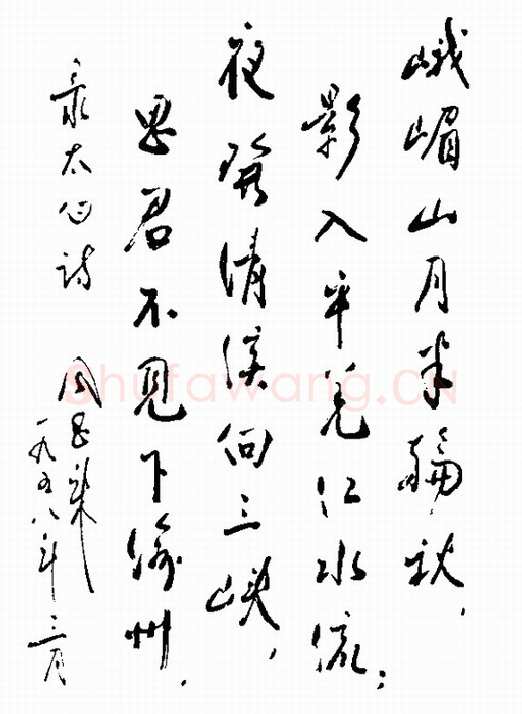 峨嵋山月半輪秋,
影入平羌江水流;
夜發清溪向三峡,
思君不見下渝州.
录太白詩
周恩来
一九五八年三月
Shufawang.CN